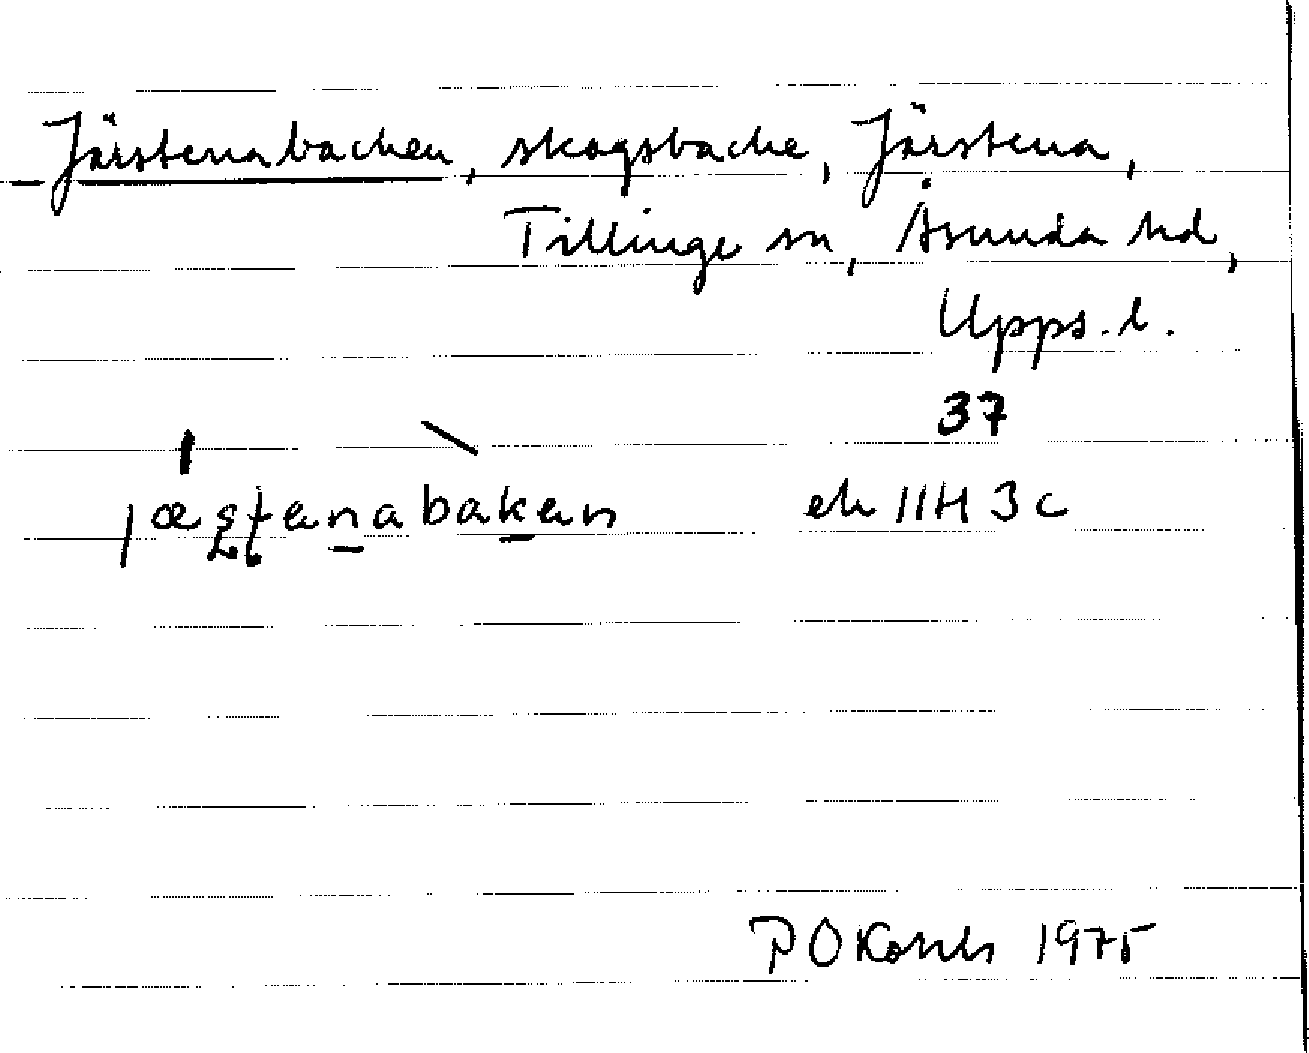 Järstenabacken, skogsbacke, Järstena,
Tillinge sn, Åsunda hd,
Upps. l.
37
jæstenabaken ek 11H 3c
P O 1975